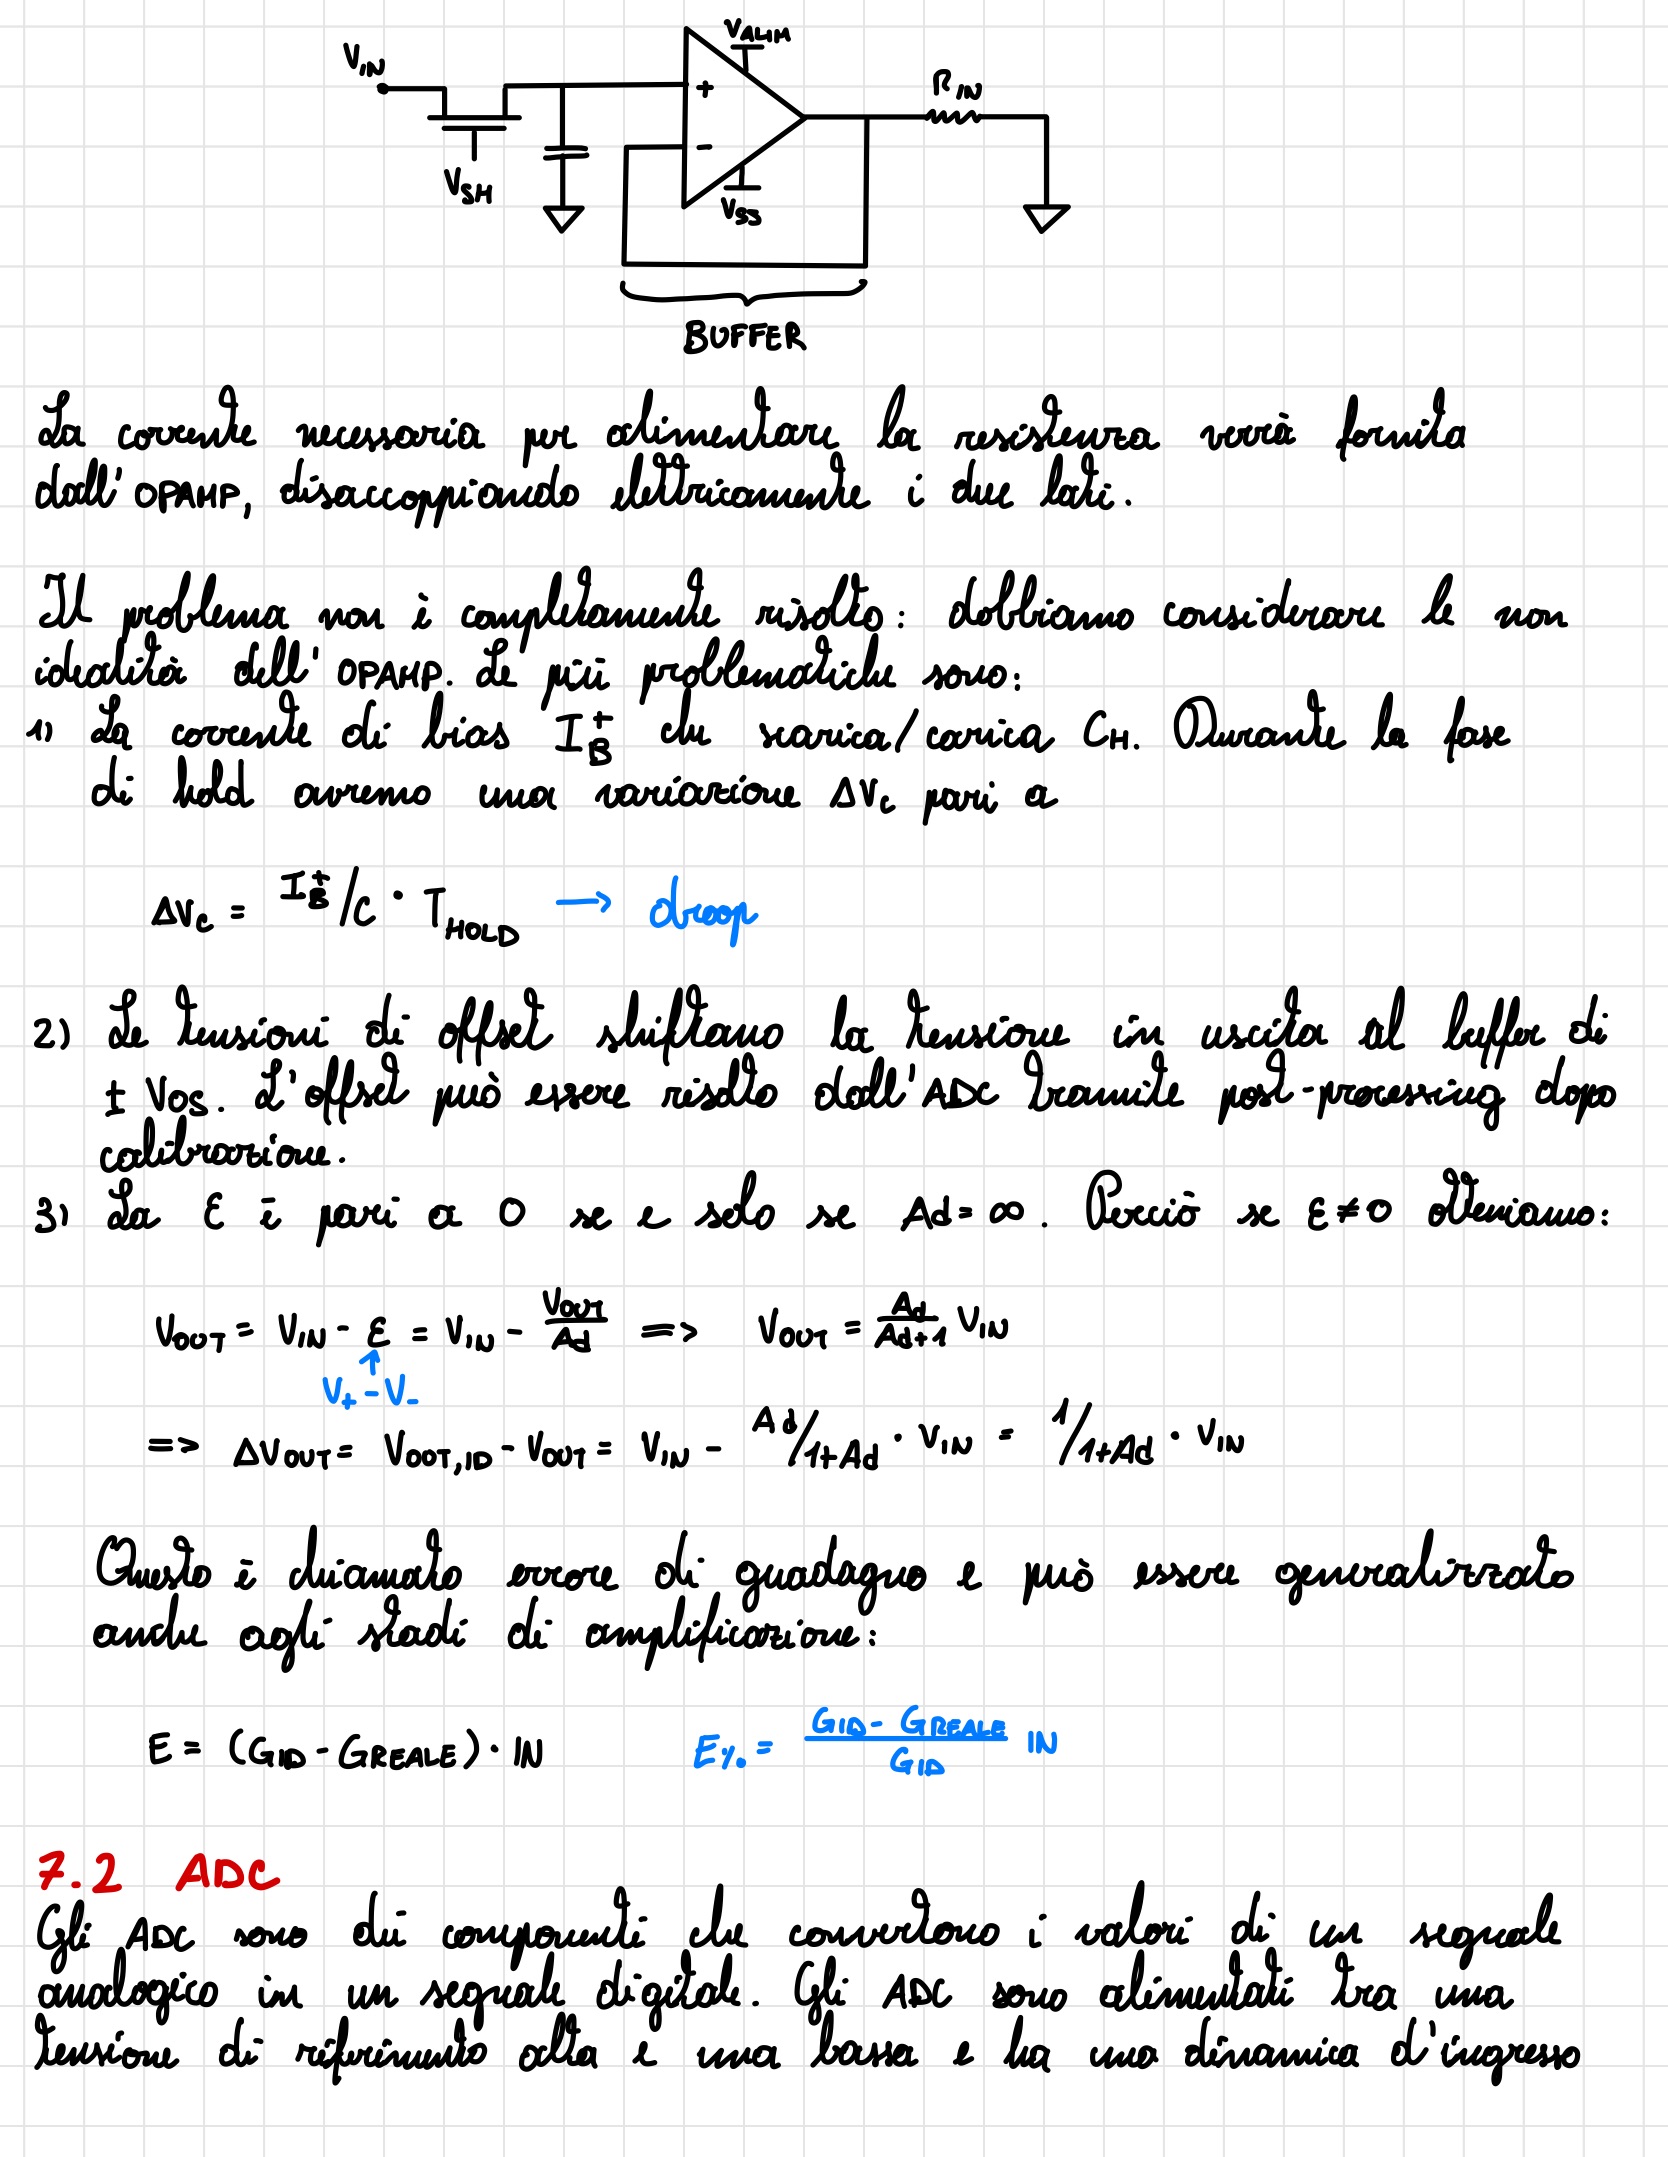 V_IN
V_SH
V_ALIM
+
-
V_SS
R_IN
BUFFER
La corrente necessaria per alimentare la resistenza verrà fornita
dall'OPAMP, disaccoppiando elettricamente i due lati.
Il problema non è completamente risolto: dobbiamo considerare le non
idealità dell'OPAMP. Le più problematiche sono:
1) La corrente di bias I_B^+ che scarica/carica C_H. Durante la fase
di hold avremo una variazione ΔV_C pari a
ΔV_C = I_B^+/C · T_HOLD → droop
2) Le tensioni di offset shiftano la tensione in uscita al buffer di
± Vos. L'offset può essere risolto dall'ADC tramite post-processing dopo
calibrazione.
3) La ε è pari a 0 se e solo se Ad = ∞. Perciò se ε ≠ 0 otteniamo:
V_OUT = V_IN - ε = V_IN - V_OUT/Ad => V_OUT = Ad/(Ad+1) V_IN
V_+ - V_-
=> ΔV_OUT = V_OUT,ID - V_OUT = V_IN - Ad/1+Ad · V_IN = 1/1+Ad · V_IN
Questo è chiamato errore di guadagno e può essere generalizzato
anche agli stadi di amplificazione:
E = (G_ID - G_REALE) · IN E% = (G_ID - G_REALE)/G_ID IN
7.2 ADC
Gli ADC sono dei componenti che convertono i valori di un segnale
analogico in un segnale digitale. Gli ADC sono alimentati tra una
tensione di riferimento alta e una bassa e ha una dinamica d'ingresso